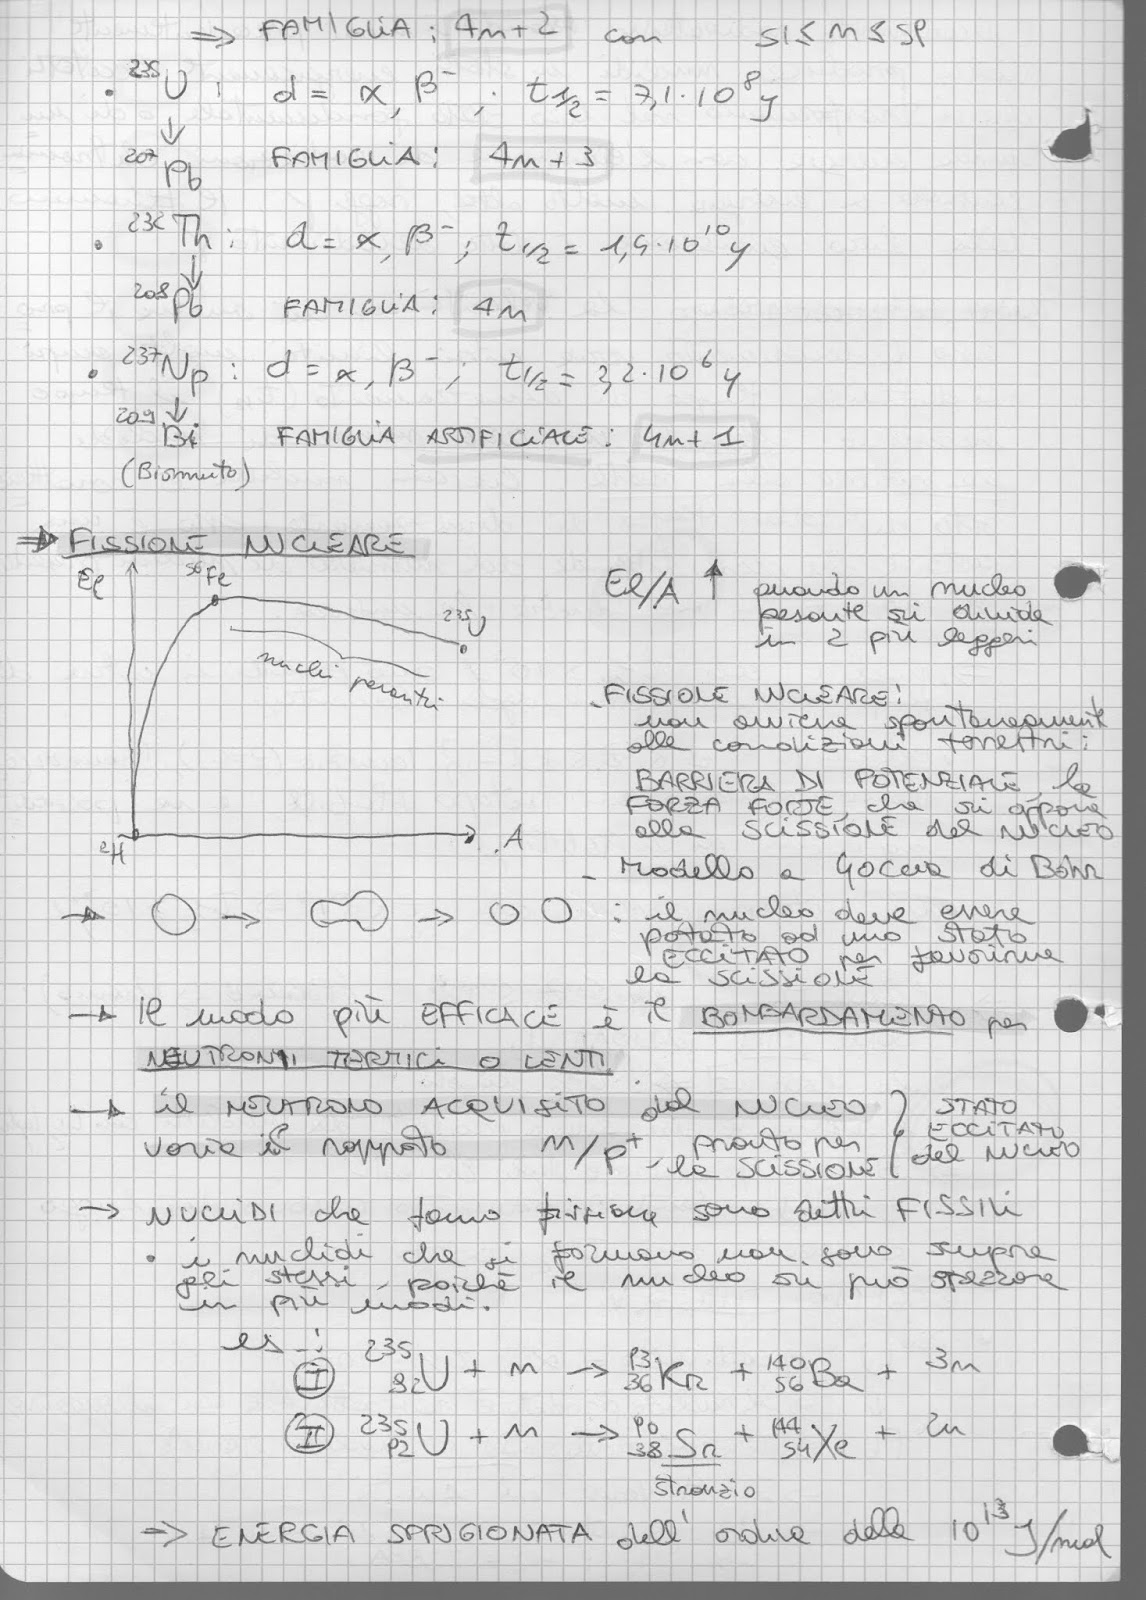 ⇒ FAMIGLIA: 4n+2 con 51 ≤ n ≤ 59
• ²³⁵U : d = α, β⁻ ; t1/2 = 7,1·10⁸y
↓
²⁰⁷Pb FAMIGLIA: 4n+3
• ²³²Th : d = α, β⁻ ; t1/2 = 1,4·10¹⁰y
↓
²⁰⁸Pb FAMIGLIA: 4n
• ²³⁷Np : d = α, β⁻ ; t1/2 = 2,2·10⁶y
↓
²⁰⁹Bi FAMIGLIA ARTIFICIALE: 4n+1
(Bismuto)
⇒ FISSIONE NUCLEARE
El
⁵⁶Fe
²³⁵U
nuclei pesanti
²H
A
El/A ↑ quando un nucleo
pesante si divide
in 2 più leggeri
- FISSIONE NUCLEARE:
non avviene spontaneamente
alle condizioni terrestri:
BARRIERA DI POTENZIALE, la
FORZA FORTE, che si oppone
alla SCISSIONE del NUCLEO
- Modello a Goccia di Bohr
→ → → : il nucleo deve essere
portato ad uno stato
ECCITATO per favorirne
la SCISSIONE
→ Il modo più EFFICACE è il BOMBARDAMENTO per
NEUTRONI TERMICI O LENTI
→ il NEUTRONO ACQUISITO dal NUCLEO
varia il rapporto n/p⁺, pronto per
la SCISSIONE
STATO
ECCITATO
del NUCLEO
→ NUCLIDI che fanno fissione sono detti FISSILI
• i nuclidi che si formano non sono sempre
gli stessi, poiché il nucleo si può spezzare
in più modi.
es.:
I ²³⁵₉₂U + n → ⁹³₃₆Kr + ¹⁴⁰₅₆Ba + 3n
II ²³⁵₉₂U + n → ⁹⁰₃₈Sr + ¹⁴⁴₅₄Xe + 2n
stronzio
⇒ ENERGIA SPRIGIONATA dell'ordine delle 10¹³ J/mol